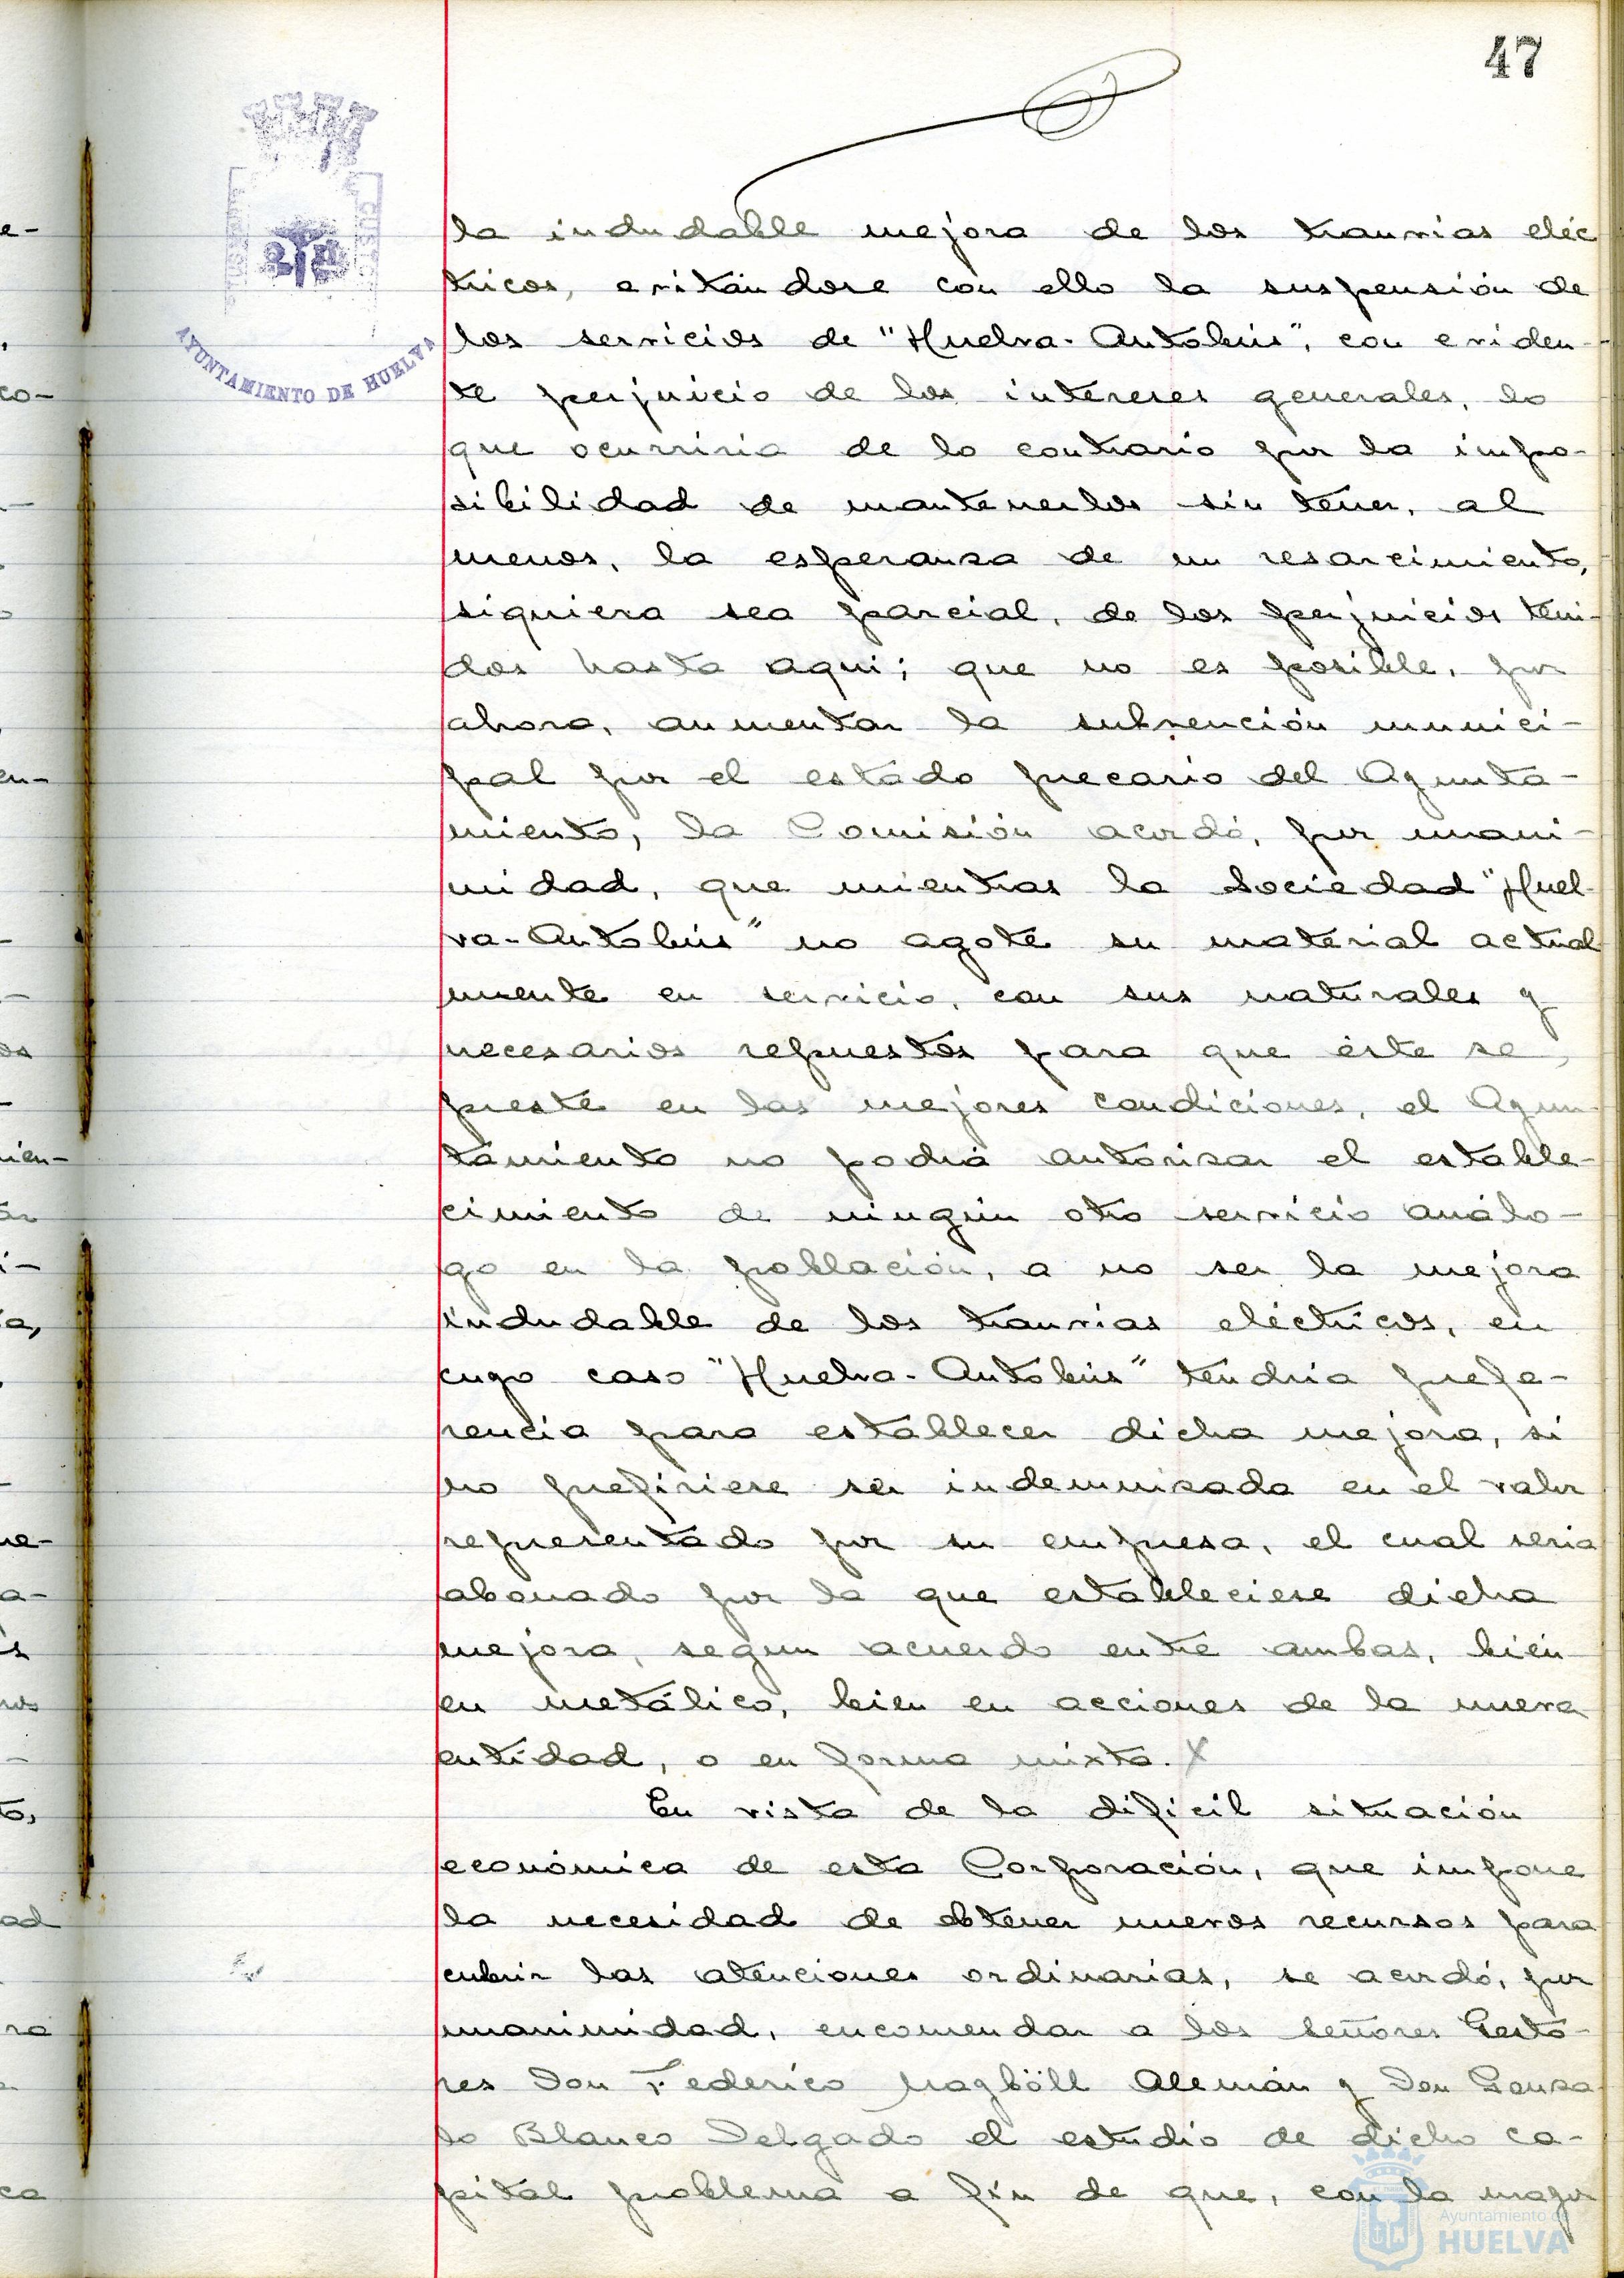 47
AYUNTAMIENTO DE HUELVA
la indudable mejora de los tranvias eléc
tricos, evitándose con ello la suspensión de
los servicios de "Huelva-Autobús", con eviden-
te perjuicio de los intereses generales, lo
que ocurriria de lo contrario por la impo-
sibilidad de mantenerlos sin tener, al
menos, la esperanza de un resarcimiento,
siquiera sea parcial, de los perjuicios teni-
dos hasta aqui; que no es posible, por
ahora, aumentar la subvención munici-
pal por el estado precario del Ayunta-
miento, la Comisión acordó, por unani-
midad, que mientras la Sociedad "Huel-
va-Autobús" no agote su material actual
mente en servicio, con sus naturales y
necesarios repuestos para que éste se
preste en las mejores condiciones, el Ayun-
tamiento no podrá autorizar el estable-
cimiento de ningún otro servicio análo-
go en la población, a no ser la mejora
indudable de los tranvias eléctricos, en
cuyo caso "Huelva-Autobús" tendria prefe-
rencia para establecer dicha mejora, si
no prefiriese ser indemnizada en el valor
representado por su empresa, el cual seria
abonado por la que estableciese dicha
mejora, segun acuerdo entre ambas, bien
en metálico, bien en acciones de la nueva
entidad, o en forma mixta. X
En vista de la dificil situación
económica de esta Corporación, que impone
la necesidad de obtener nuevos recursos para
cubrir las atenciones ordinarias, se acordó, por
unanimidad, encomendar a los señores Gesto-
res Don Federico Magböll Alemán y Don Gonza-
lo Blanco Delgado el estudio de dicho ca-
pital problema a fin de que, con la mayor
Ayuntamiento de
HUELVA